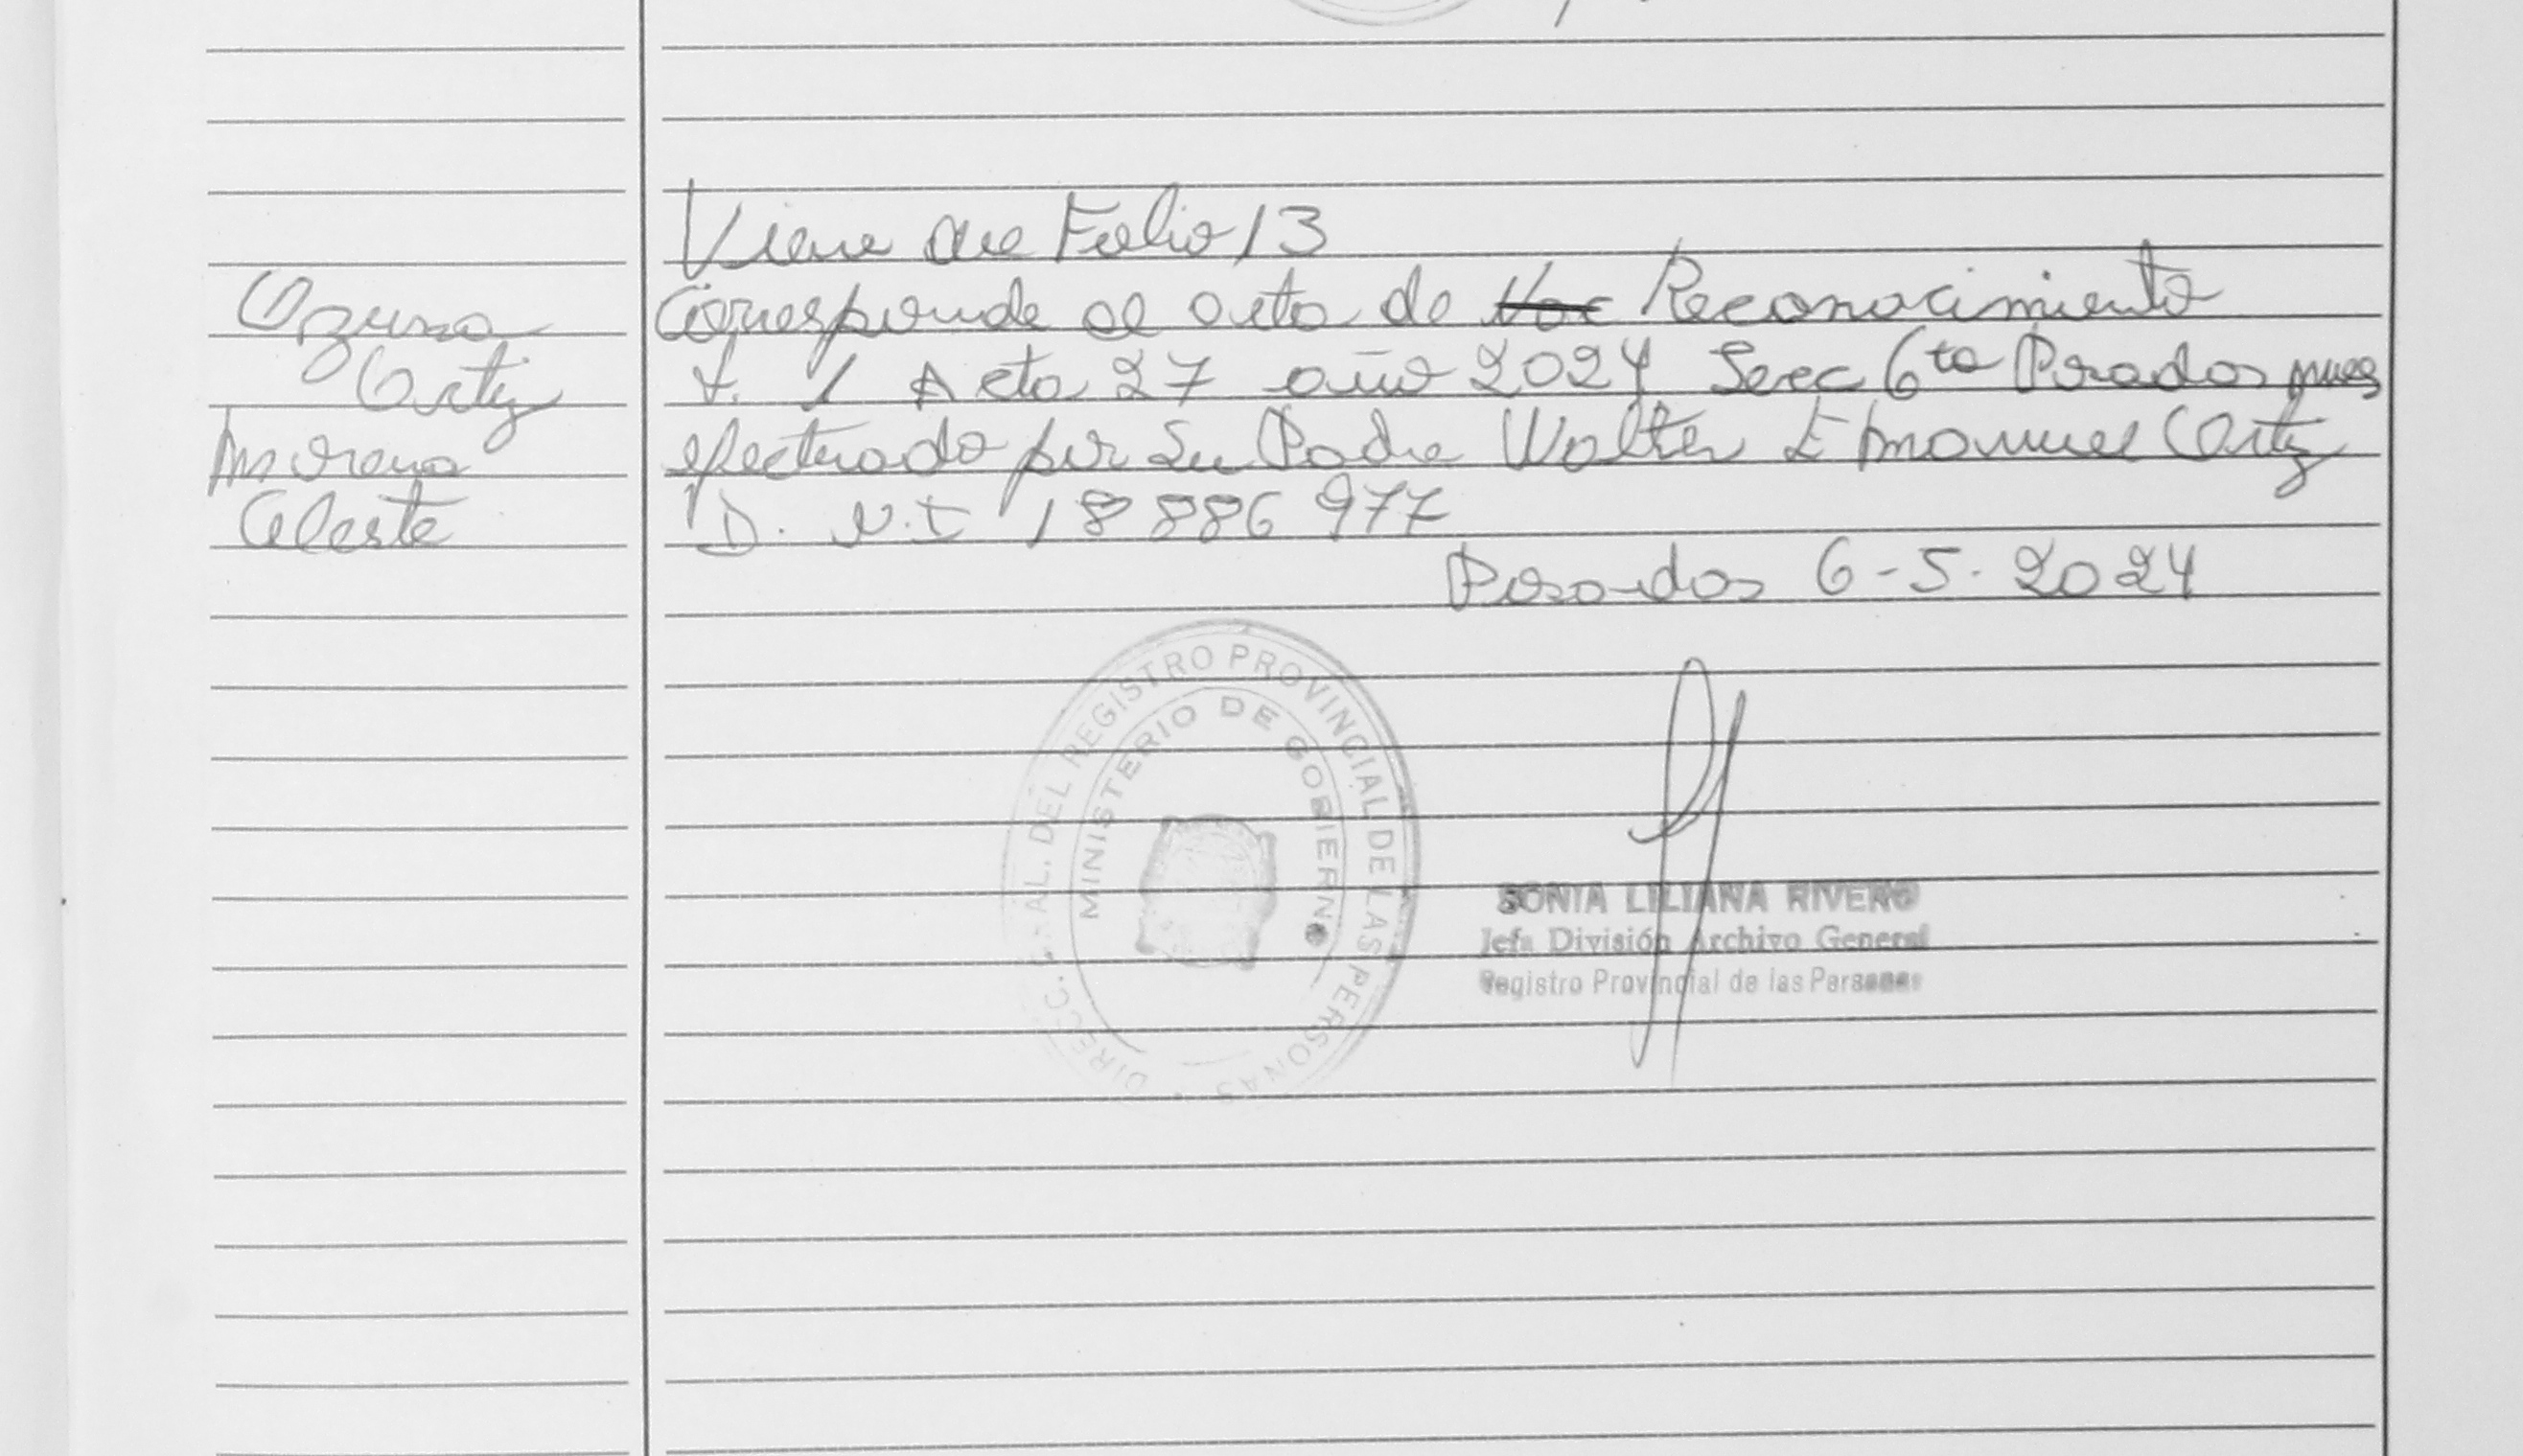 Viene de Folio 13
Ozuna
Ortiz
Morena
Celeste
Corresponde al acta de Reconocimiento
t. 1 Acta 27 año 2024 Secc 6ta Posadas mnes
efectuado por su Padre Walter Emanuel Ortiz
D. N. I 18 886 977
Posadas 6-5-2024
DIRECC. GRAL. DEL REGISTRO PROVINCIAL DE LAS PERSONAS
MINISTERIO DE GOBIERNO
SONIA LILIANA RIVERO
Jefa División Archivo General
Registro Provincial de las Personas